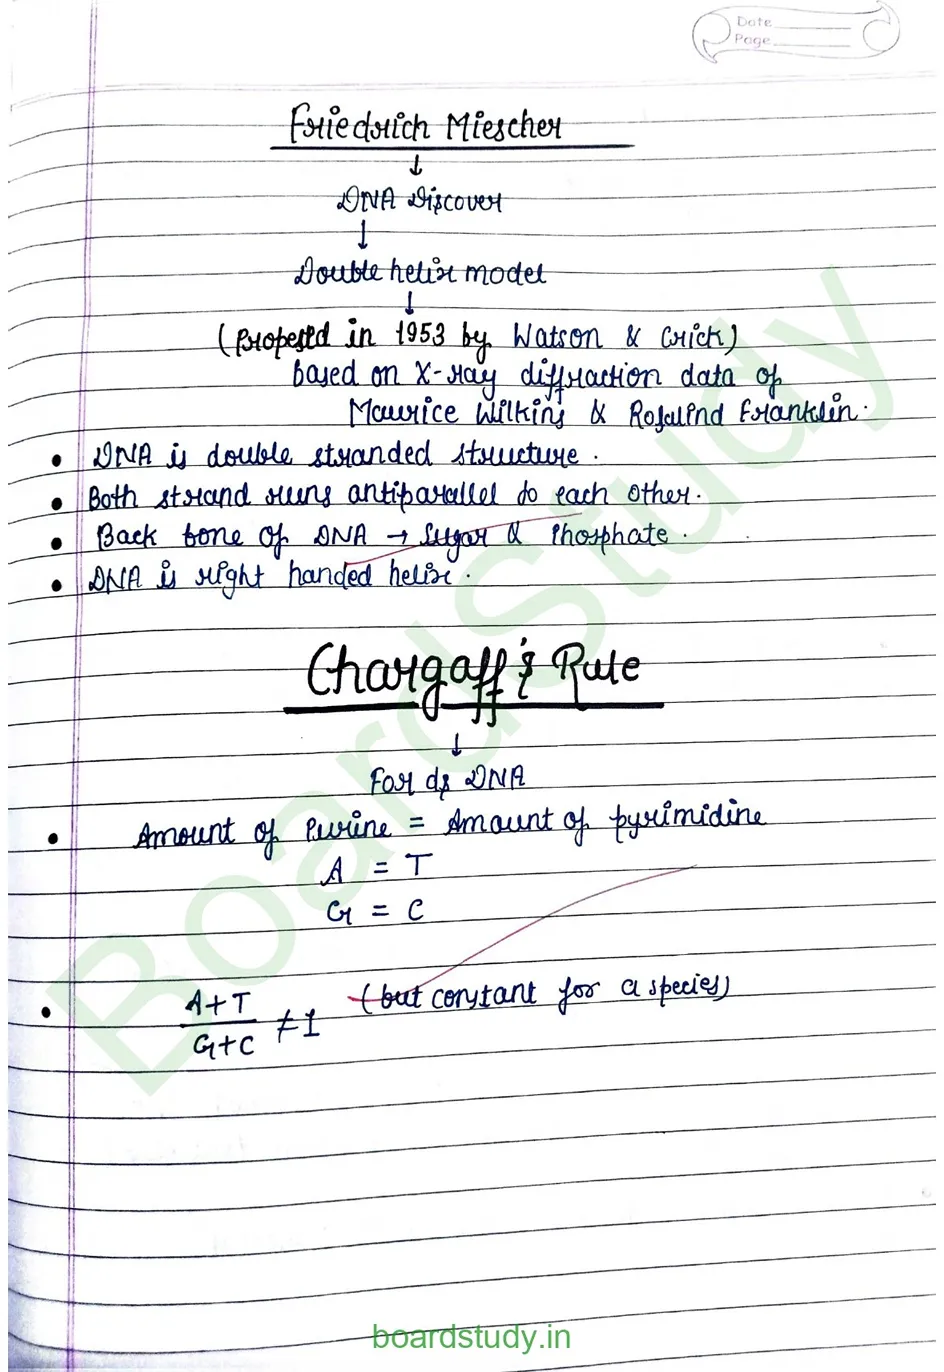 Date
Page
Friedrich Miescher
↓
DNA Discover
↓
Double helix model
↓
(Propesed in 1953 by Watson & Crick)
based on X-ray diffraction data of
Maurice Wilkins & Rosalind Franklin.
• DNA is double stranded structure.
• Both strand runs antiparallel to each other.
• Back bone of DNA → Sugar & Phosphate.
• DNA is right handed helix.
Chargaff's Rule
↓
For ds DNA
• Amount of Purine = Amount of pyrimidine
A = T
G = C
• A+T / G+C ≠ 1 (but constant for a species)
BoardStudy
boardstudy.in